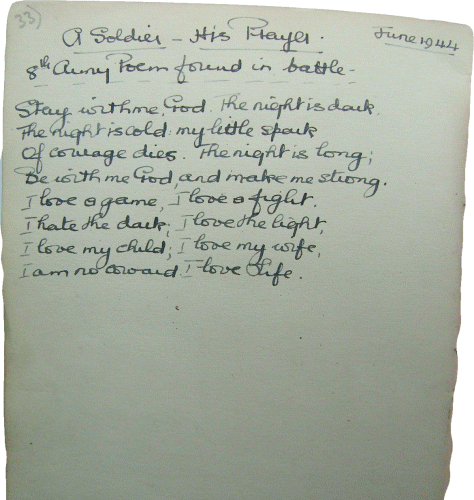 33)
A Soldier - His Prayer.
June 1944
8th Army Poem found in battle -
Stay with me, God. The night is dark,
The night is cold: my little spark
Of courage dies. The night is long;
Be with me God, and make me strong.
I love a game, I love a fight.
I hate the dark; I love the light,
I love my child; I love my wife,
I am no coward I love Life.